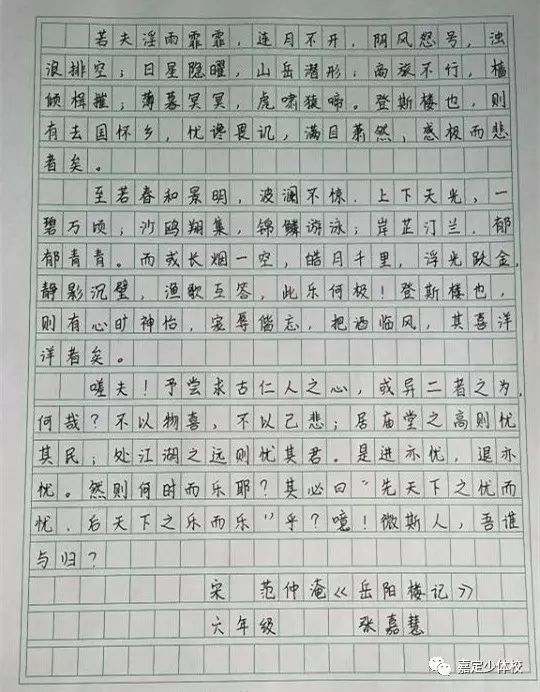 若夫淫雨霏霏，连月不开，阴风怒号，浊
浪排空；日星隐曜，山岳潜形；商旅不行，樯
倾楫摧；薄暮冥冥，虎啸猿啼。登斯楼也，则
有去国怀乡，忧谗畏讥，满目萧然，感极而悲
者矣。
至若春和景明，波澜不惊，上下天光，一
碧万顷；沙鸥翔集，锦鳞游泳；岸芷汀兰，郁
郁青青。而或长烟一空，皓月千里，浮光跃金，
静影沉璧，渔歌互答，此乐何极！登斯楼也，
则有心旷神怡，宠辱偕忘，把酒临风，其喜洋
洋者矣。
嗟夫！予尝求古仁人之心，或异二者之为，
何哉？不以物喜，不以己悲；居庙堂之高则忧
其民；处江湖之远则忧其君。是进亦忧，退亦
忧。然则何时而乐耶？其必曰“先天下之忧而
忧，后天下之乐而乐”乎？噫！微斯人，吾谁
与归？
宋 范仲淹《岳阳楼记》
六年级 张嘉慧
嘉定少体校